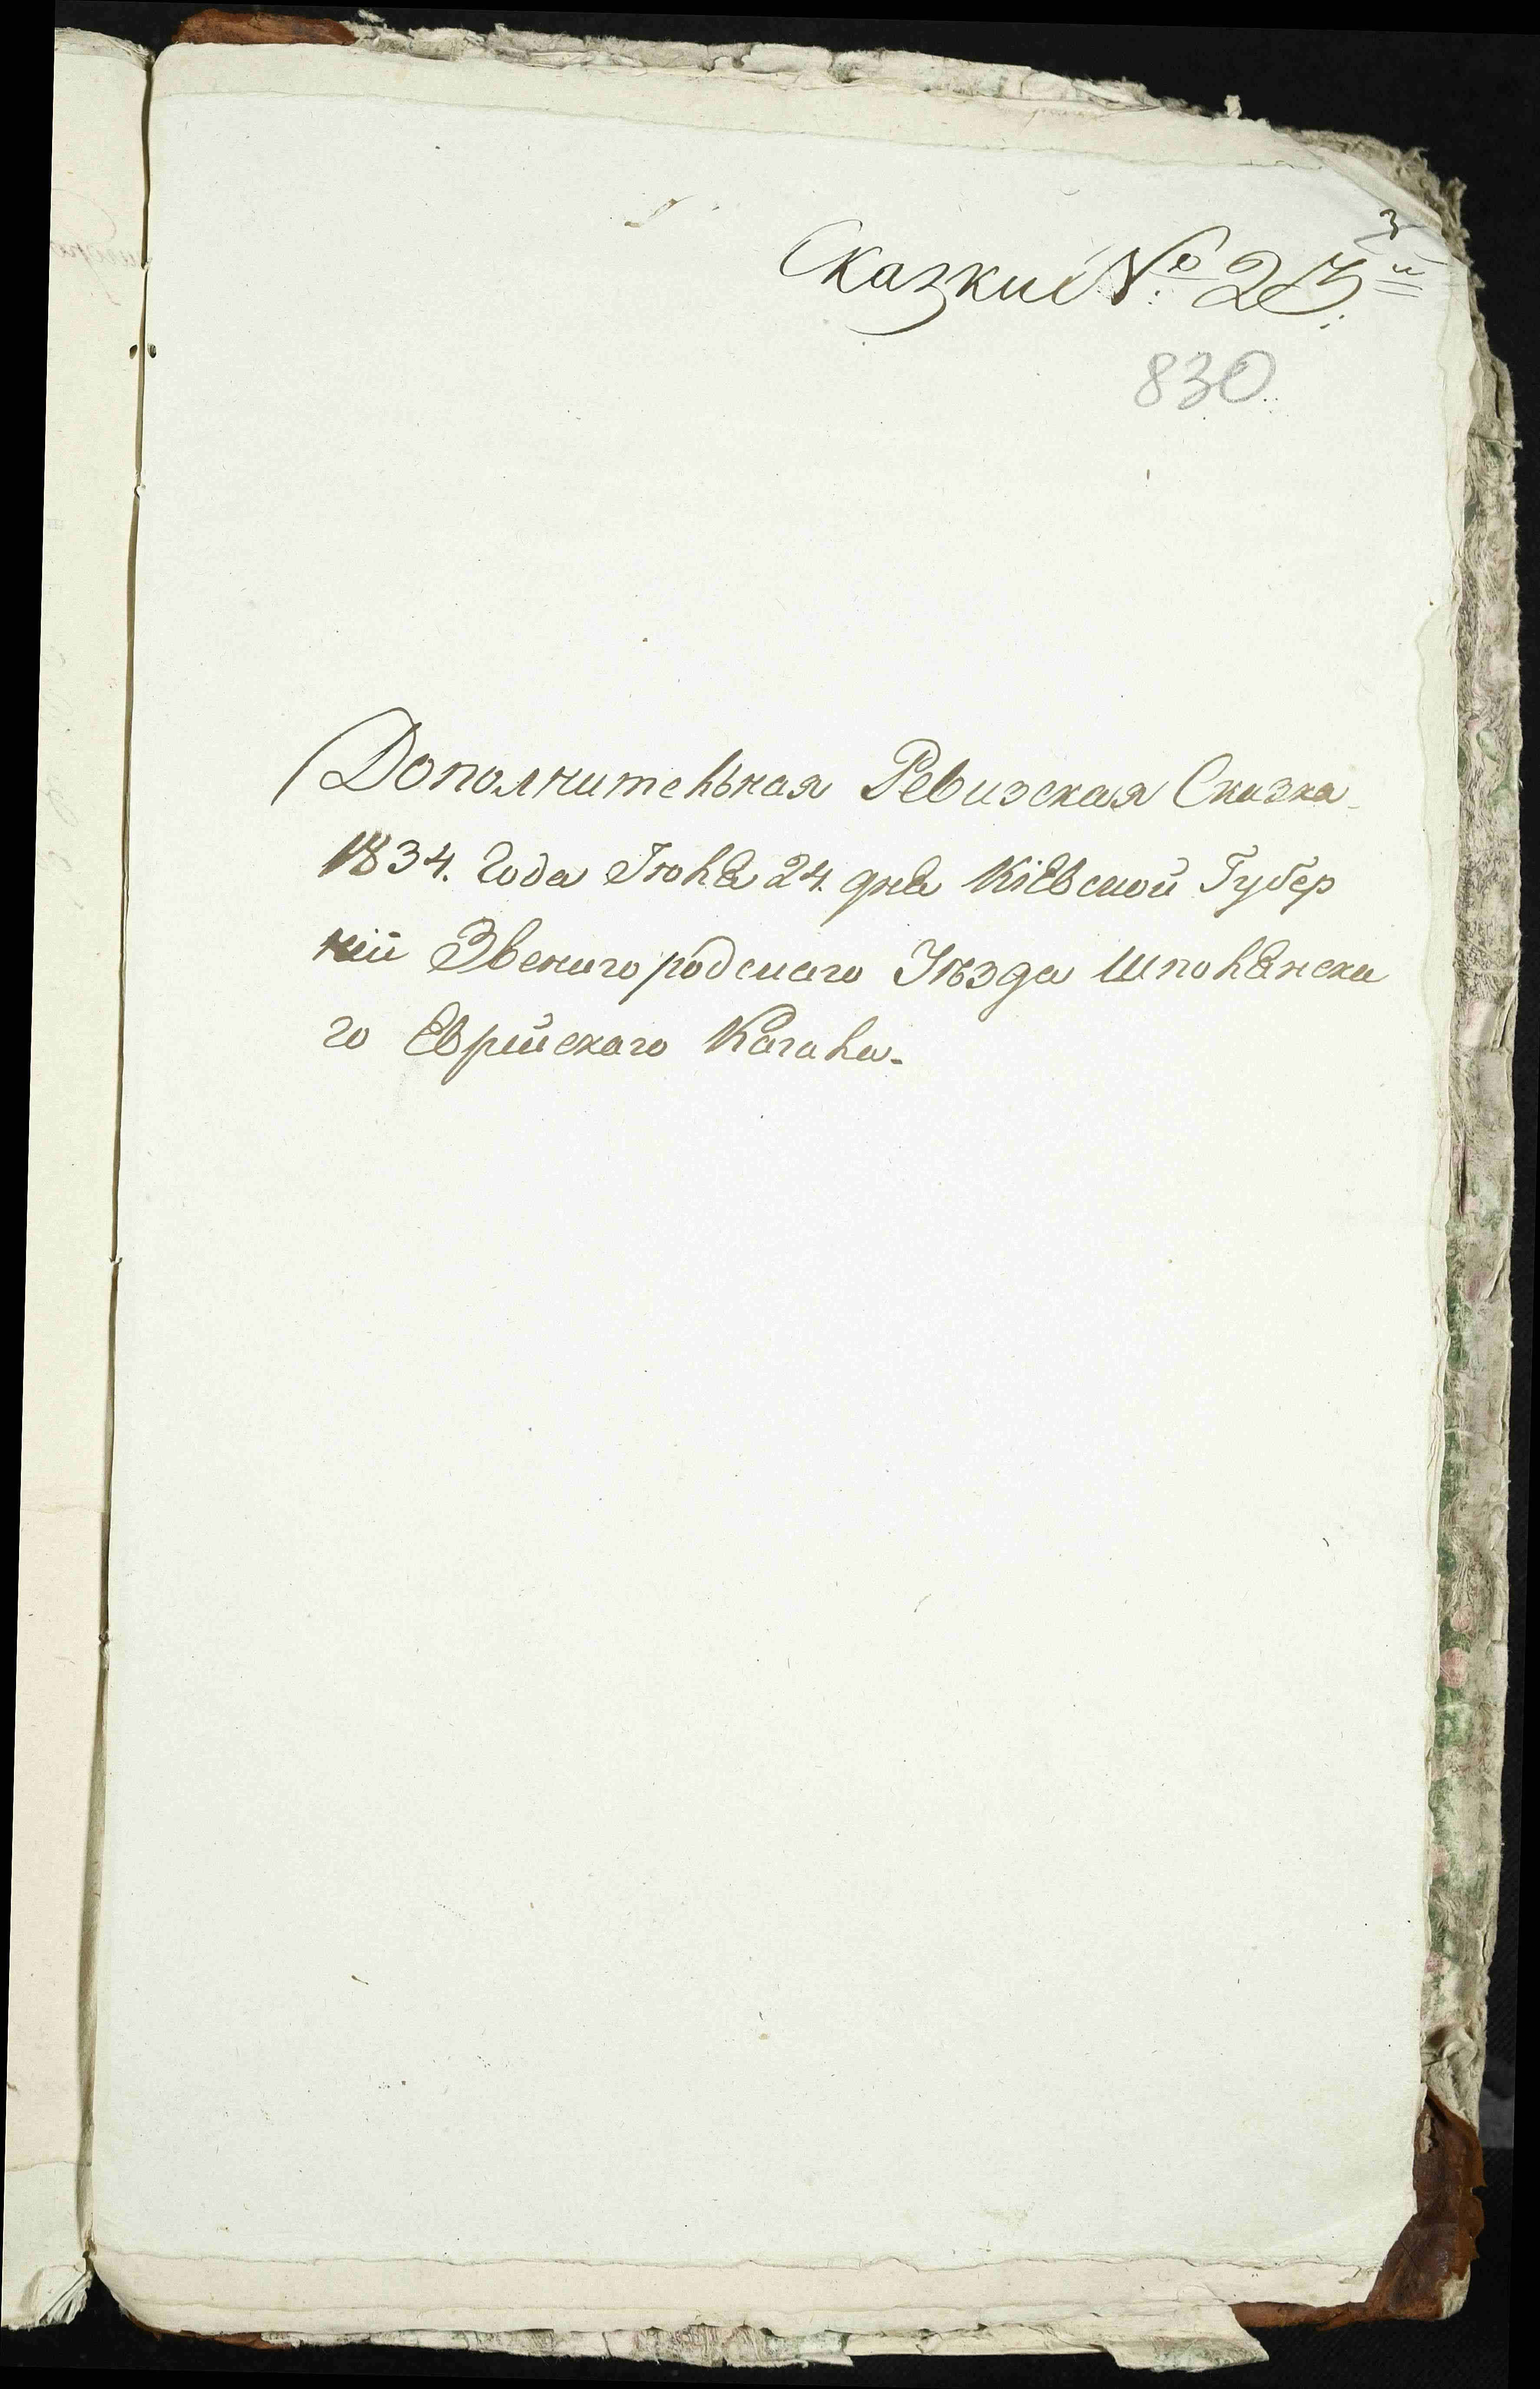 Сказки № 23й
830
Дополнительная Ревизская Сказка
1834. Года Іюля 24. дня Кіевской Губер
ніи Звенигородскаго Уѣзда Шполянска
го Еврейскаго Кагала.